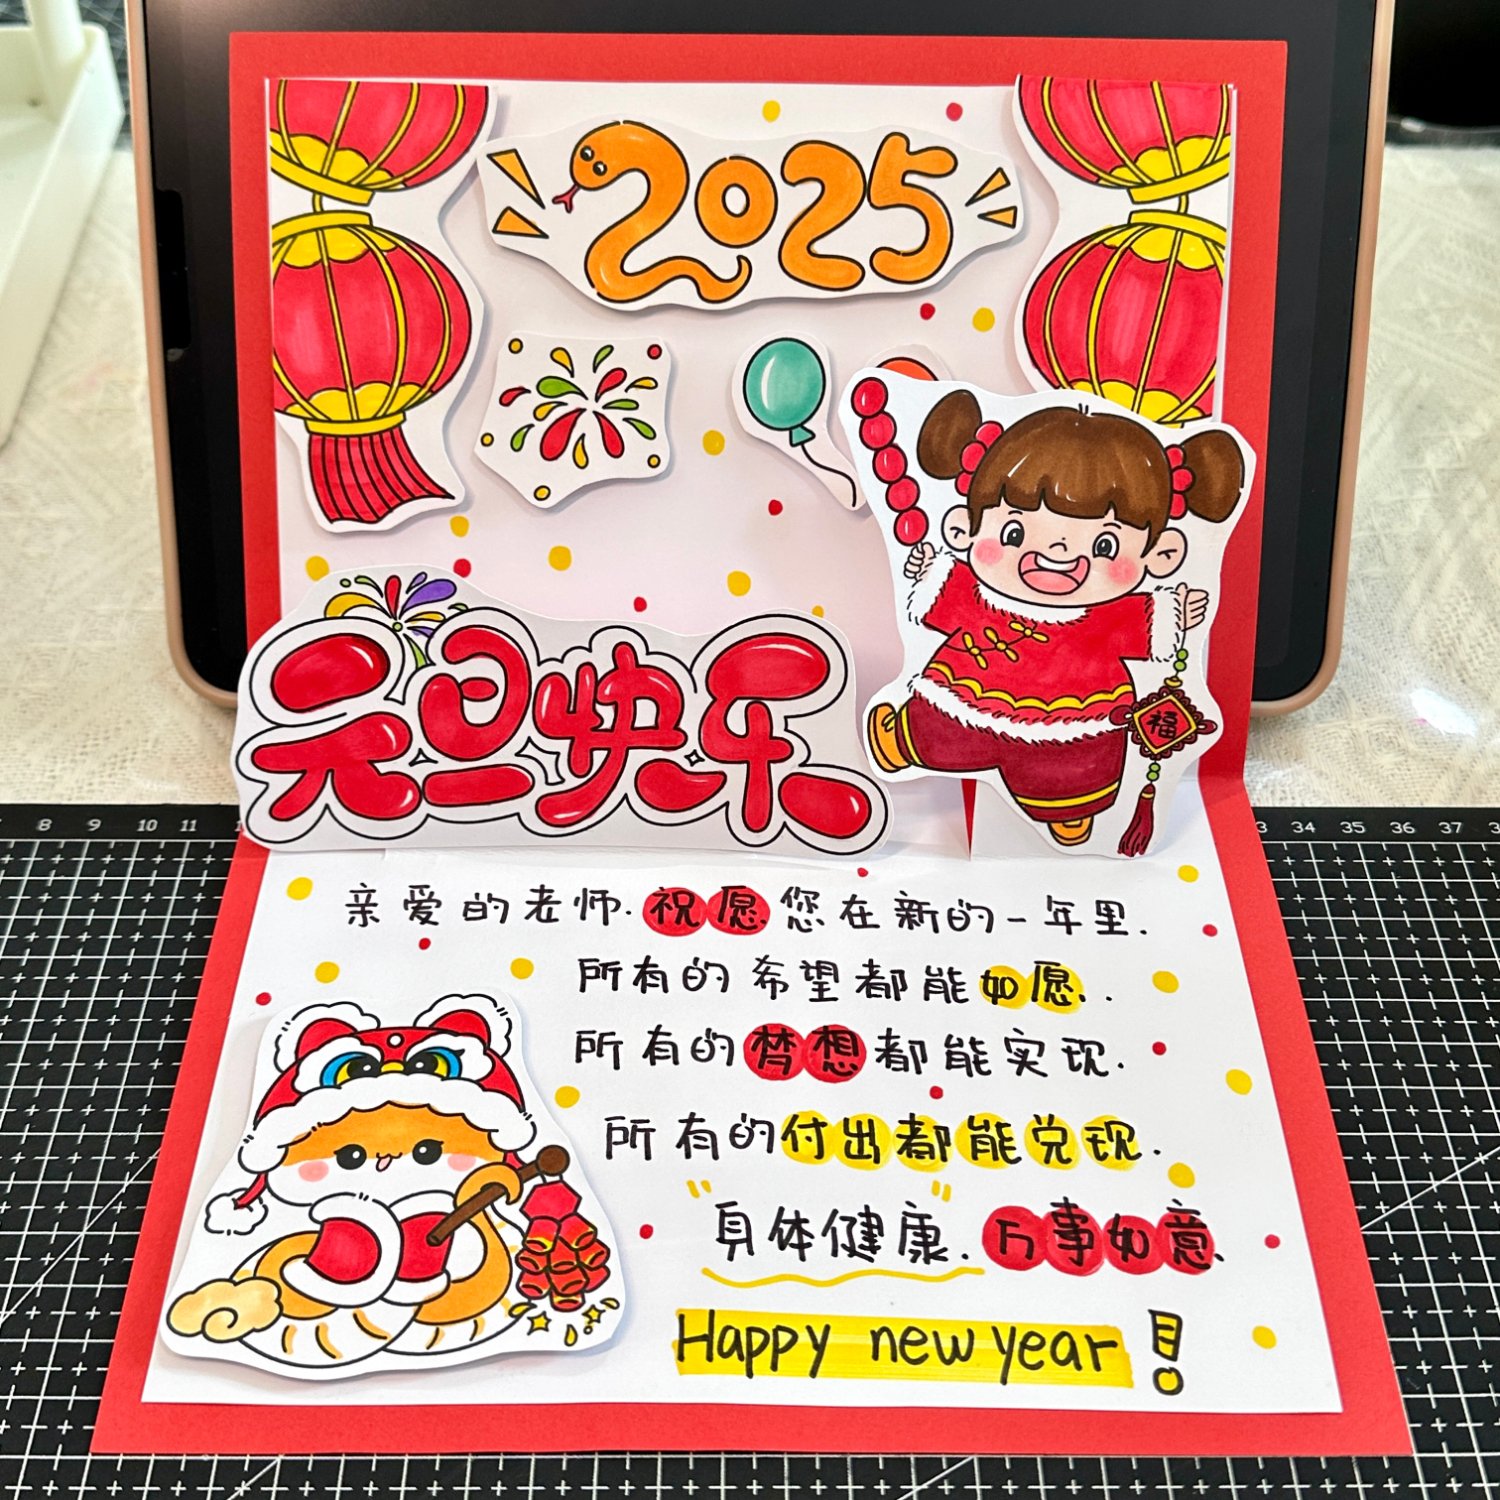 2025
元旦快乐
福
亲爱的老师.祝愿您在新的一年里.
所有的希望都能如愿..
所有的梦想都能实现.
所有的付出都能兑现.
"身体健康".万事如意.
Happy new year!
8 9 10 11
33 34 35 36 37